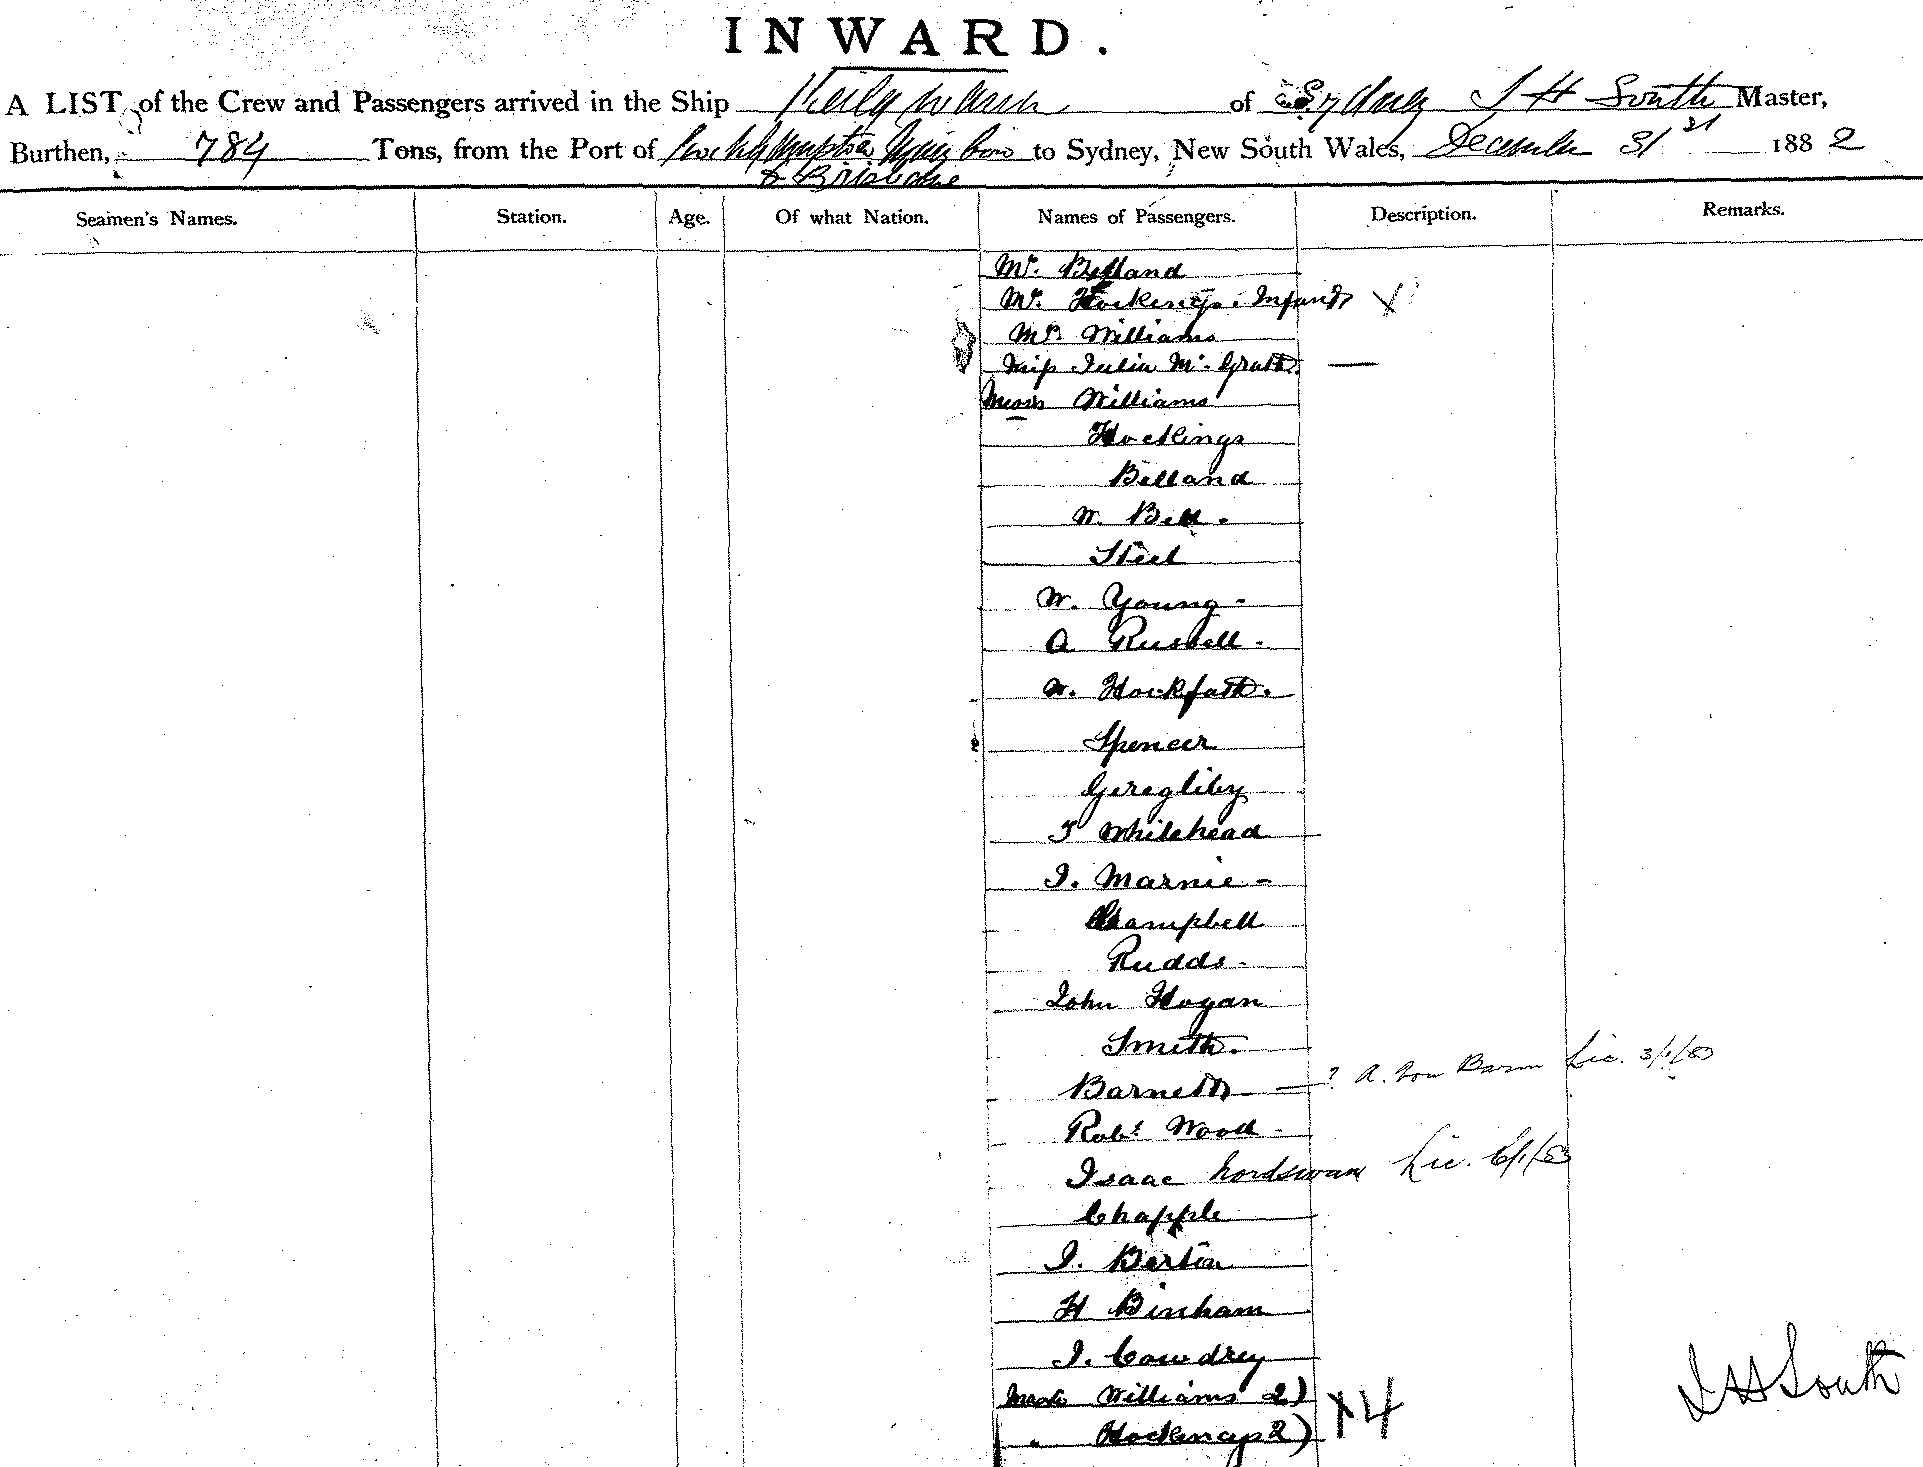 INWARD.
A LIST of the Crew and Passengers arrived in the Ship Keilawarra of Sydney J H South Master,
Burthen, 784 Tons, from the Port of Rockhampton to Sydney, New South Wales, December 31 21 1882
& Brisbane
Seamen's Names. Station. Age. Of what Nation. Names of Passengers. Description. Remarks.
Mrs. Belland
Mrs. Hockings. Infant X
Mrs Williams
Miss Julia Mc.Grath. —
Messrs Williams
Hockings
Belland
W. Bell.
Steel
W. Young -
A Russell -
W. Hockfath.
Spencer
Geregliby
T Whitehead
J. Marnie -
Campbell
Rudds.
John Hogan
Smith.
Barnett - —? A. Von Barm Lic. 3/1/83
Robt Wood -
Isaac Nordswan Lic. 6/1/83
Chapple
J. Berton
H Binham
J. Cowdrey
Mast Williams 2)
" Hockings 2) X4
J H South